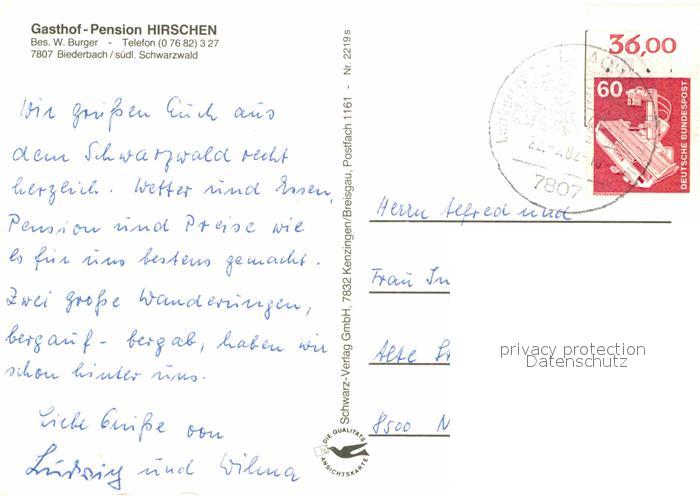 Gasthof-Pension HIRSCHEN
Bes. W. Burger - Telefon (0 76 82) 3 27
7807 Biederbach / südl. Schwarzwald
Wir grüßen Euch aus
dem Schwarzwald recht
herzlich. Wetter und Essen,
Pension und Preise wie
es für uns bestens gemacht.
Zwei große Wanderungen,
bergauf - bergab, haben wir
schon hinter uns.
Liebe Grüße von
Ludwig und Wilma
Schwarz-Verlag GmbH, 7832 Kenzingen/Breisgau, Postfach 1161 - Nr. 2219 s
DIE QUALITÄTS
ANSICHTSKARTE
36,00
60
DEUTSCHE BUNDESPOST
7807
Herrn Alfred und
Frau In
Alte St
8500 N
privacy protection
Datenschutz